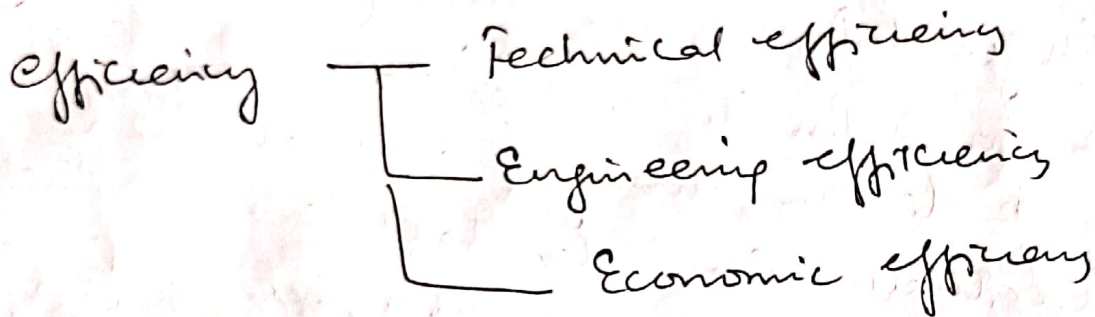 efficiency
Technical efficiency
Engineering efficiency
Economic efficiency